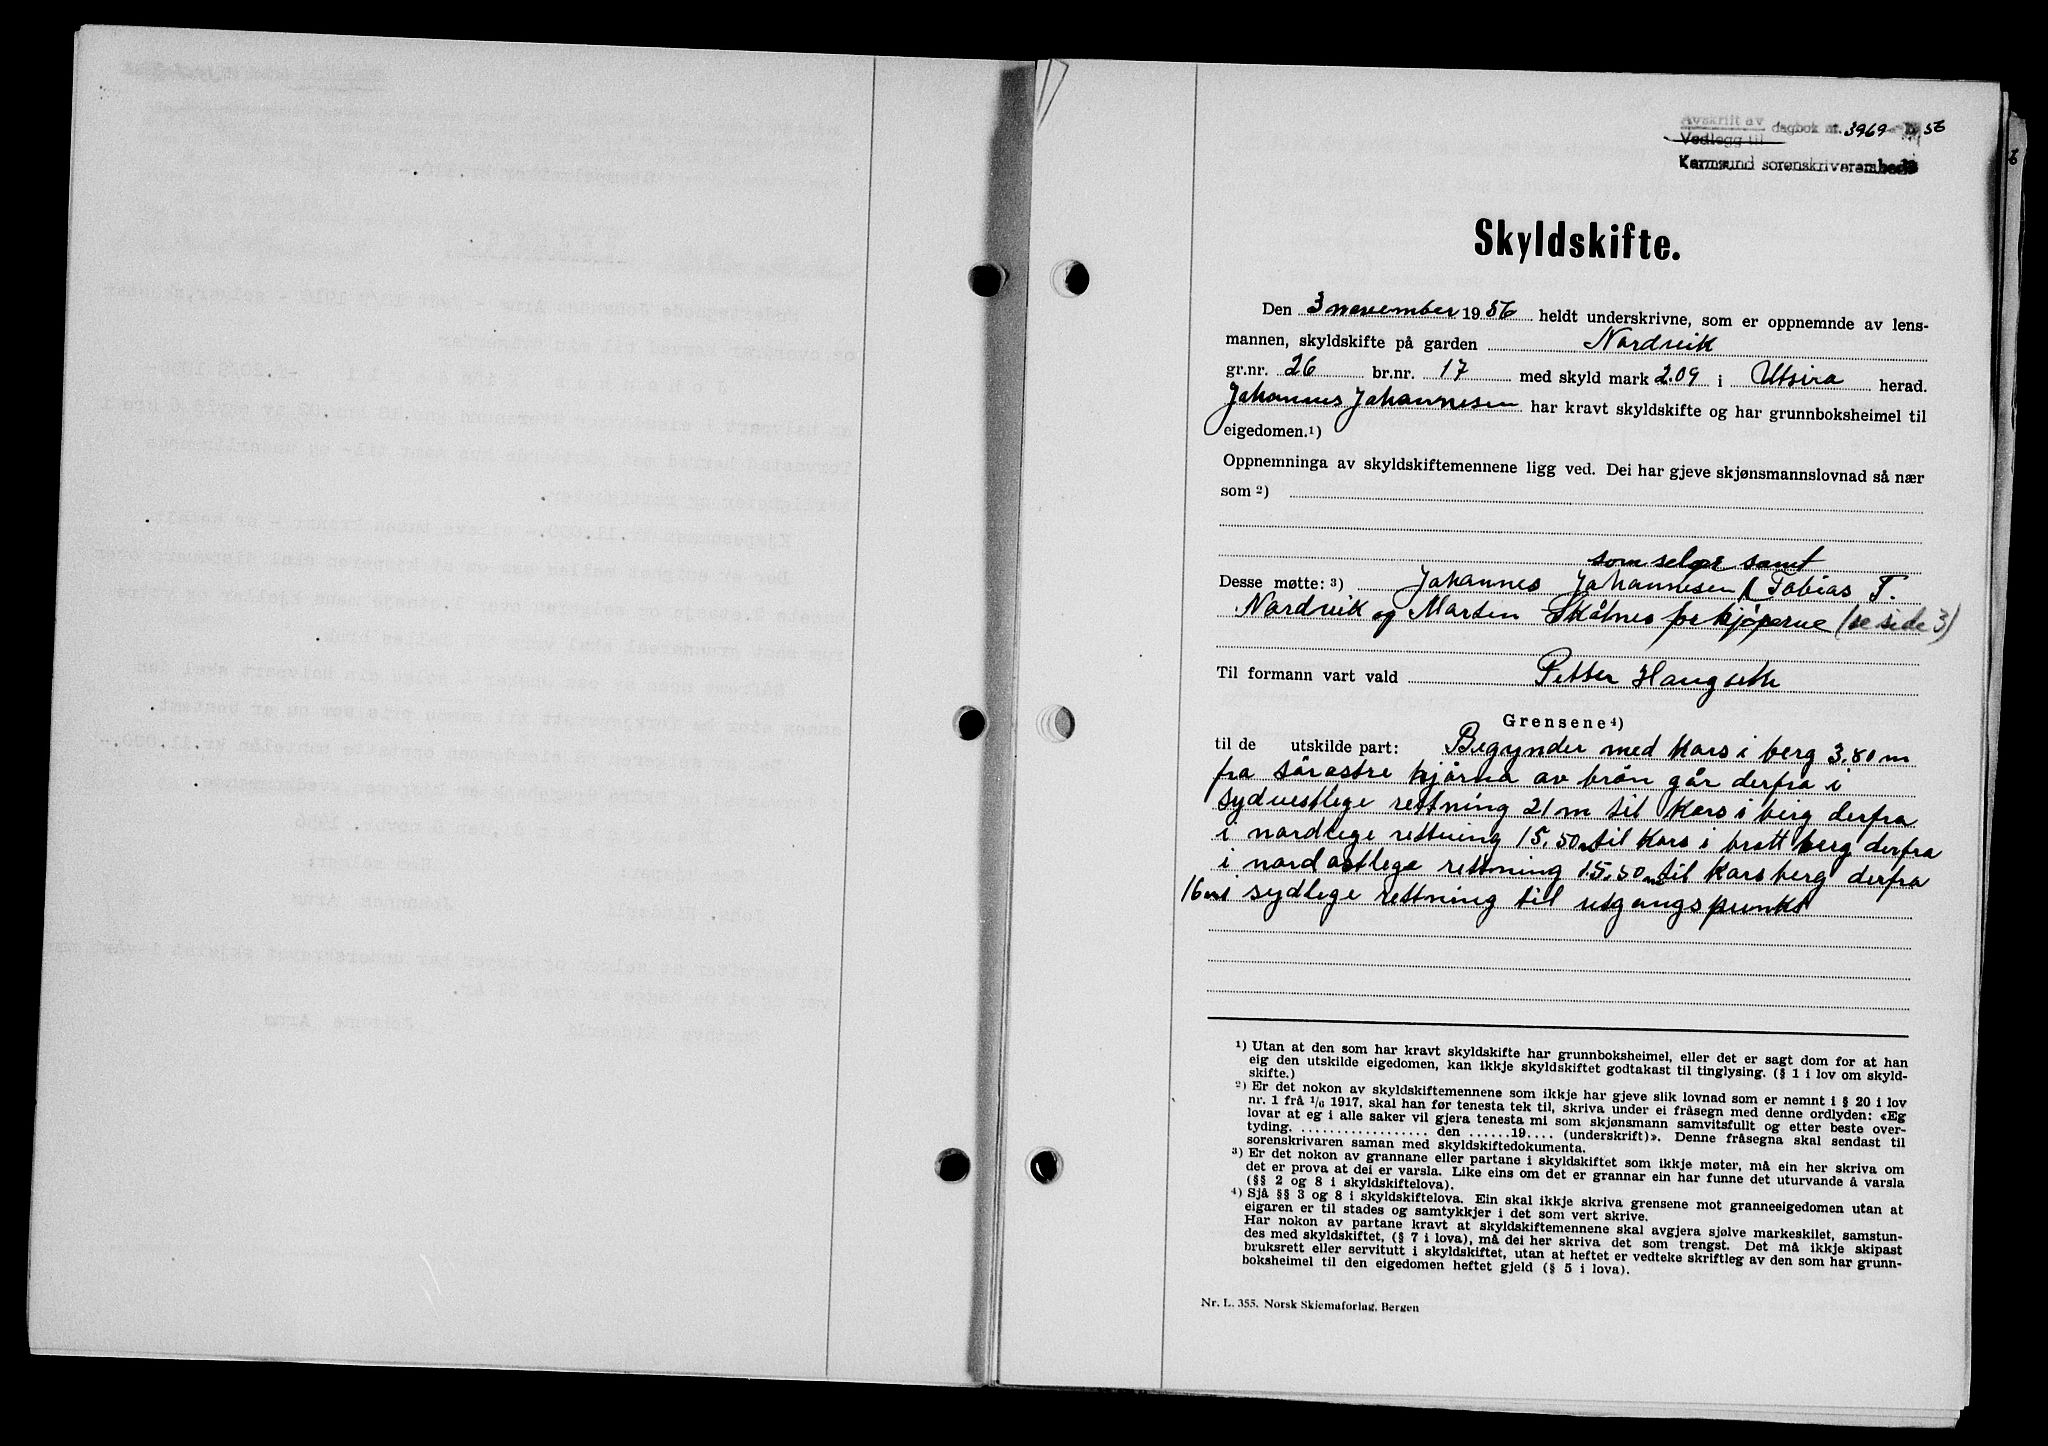 Avskrift av
Vedlegg til dagbok nr. 3969 - 1956
Karmsund sorenskriverembede
Skyldskifte.
Den 3 november 1956 heldt underskrivne, som er oppnemnde av lens-
mannen, skyldskifte på garden Nordvik
gr.nr. 26 br.nr. 17 med skyld mark 2.09 i Utsira herad.
Johannes Johannesen har kravt skyldskifte og har grunnboksheimel til
eigedomen.¹)
Oppnemninga av skyldskiftemennene ligg ved. Dei har gjeve skjønsmannslovnad så nær
som ²)
som selger samt
Desse møtte: ³) Johannes Johannesen / Tobias T.
Nordvik og Marten Skåtnes for kjøperne (se side 3)
Til formann vart vald Petter Haugseth
Grensene ⁴)
til de utskilde part: Begynder med kors i berg 3.80 m
fra sörøstre hjörna av brön går derfra i
sydvestlege rettning 21 m til kors i berg derfra
i nordlege rettning 15,50 m til kors i bratt berg derfra
i nordøstlege rettning 15.50 m til kors berg derfra
16 m i sydlege rettning til utgangspunkt
¹) Utan at den som har kravt skyldskifte har grunnboksheimel, eller det er sagt dom for at han
eig den utskilde eigedomen, kan ikkje skyldskiftet godtakast til tinglysing. (§ 1 i lov om skyld-
skifte.)
²) Er det nokon av skyldskiftemennene som ikkje har gjeve slik lovnad som er nemnt i § 20 i lov
nr. 1 frå ¹/₆ 1917, skal han før tenesta tek til, skriva under ei fråsegn med denne ordlyden: «Eg
lovar at eg i alle saker vil gjera tenesta mi som skjønsmann samvitsfullt og etter beste over-
tyding. .................. den ......19.... (underskrift)». Denne fråsegna skal sendast til
sorenskrivaren saman med skyldskiftedokumenta.
³) Er det nokon av grannane eller partane i skyldskiftet som ikkje møter, må ein her skriva om
det er prova at dei er varsla. Like eins om det er grannar ein har funne det uturvande å varsla
(§§ 2 og 8 i skyldskiftelova).
⁴) Sjå §§ 3 og 8 i skyldskiftelova. Ein skal ikkje skriva grensene mot granneeigedomen utan at
eigaren er til stades og samtykkjer i det som vert skrive.
Har nokon av partane kravt at skyldskiftemennene skal avgjera sjølve markeskilet, samstun-
des med skyldskiftet, (§ 7 i lova), må dei her skriva det som trengst. Det må ikkje skipast
bruksrett eller servitutt i skyldskiftet, utan at heftet er vedteke skriftleg av den som har grunn-
boksheimel til den eigedomen heftet gjeld (§ 5 i lova).
Nr. L. 355. Norsk Skjemaforlag, Bergen